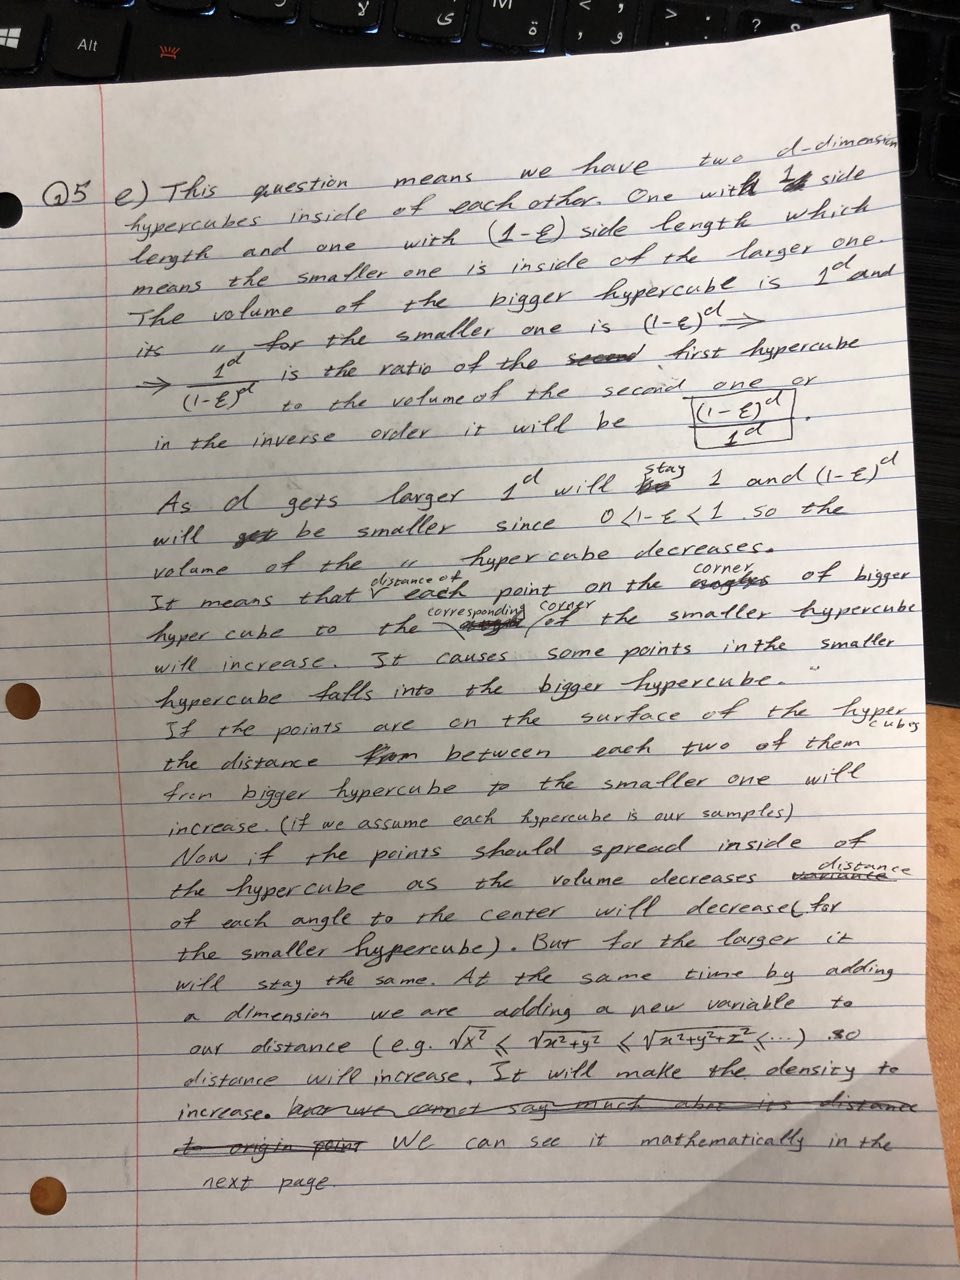 Alt
Q5 e) This question means we have two d-dimension
hypercubes inside of each other. One with 1 side
length and one with (1-ε) side length which
means the smaller one is inside of the larger one.
The volume of the bigger hypercube is 1^d and
its " for the smaller one is (1-ε)^d ⇒
⇒ 1^d/(1-ε)^d is the ratio of the second first hypercube
to the volume of the second one or
in the inverse order it will be (1-ε)^d/1^d.
As d gets larger 1^d will be stay 1 and (1-ε)^d
will get be smaller since 0<1-ε<1 so the
volume of the " hyper cube decreases.
It means that distance of each point on the corner of bigger
hyper cube to the corresponding corner of the smaller hypercube
will increase. It causes some points in the smaller
hypercube falls into the bigger hypercube. "
If the points are on the surface of the hyper cubes
the distance from between each two of them
from bigger hypercube to the smaller one will
increase. (if we assume each hypercube is our samples)
Now if the points should spread inside of
the hypercube as the volume decreases variance distance
of each angle to the center will decrease (for
the smaller hypercube). But for the larger it
will stay the same. At the same time by adding
a dimension we are adding a new variable to
our distance (e.g. √x² ≤ √x²+y² ≤ √x²+y²+z² ≤...) so
distance will increase. It will make the density to
increase. we cannot say much its distance
to origin point We can see it mathematically in the
next page.